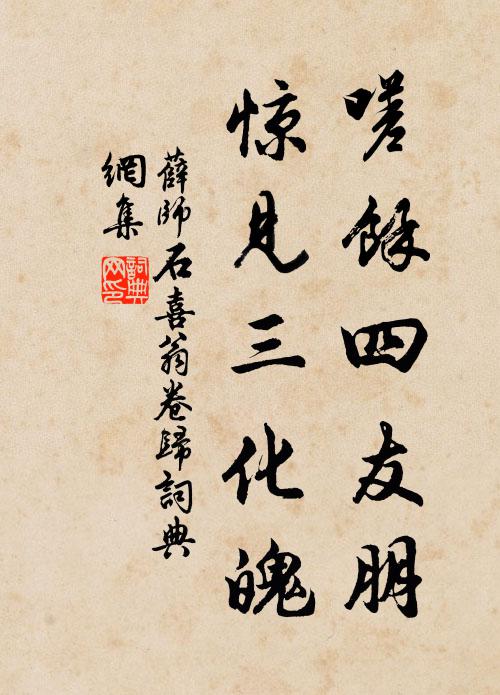 嗟餘四友朋
惊見三化魄
薛師石喜翁卷歸詞典
網集
詞典网印